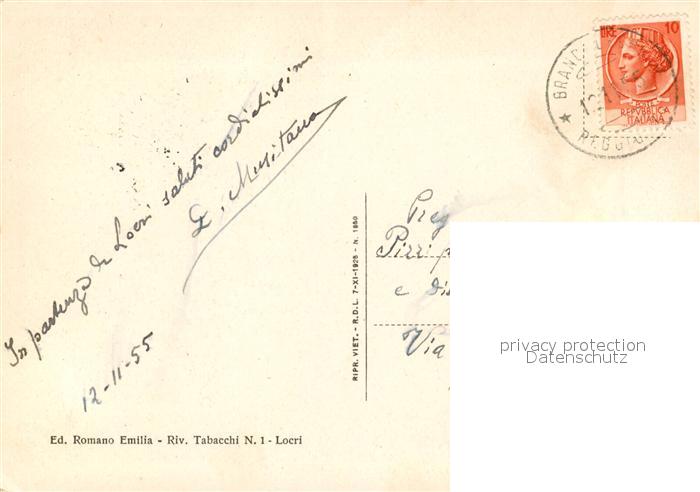 In partenza da Locri saluti cordialissimi
12-11-55
Ed. Romano Emilia - Riv. Tabacchi N. 1 - Locri
RIPR. VIET. - R.D.L. 7-XI-1925 - N. 1950
LIRE 10
POSTE
REPVBBLICA
ITALIANA
REGGIO
Via
privacy protection
Datenschutz